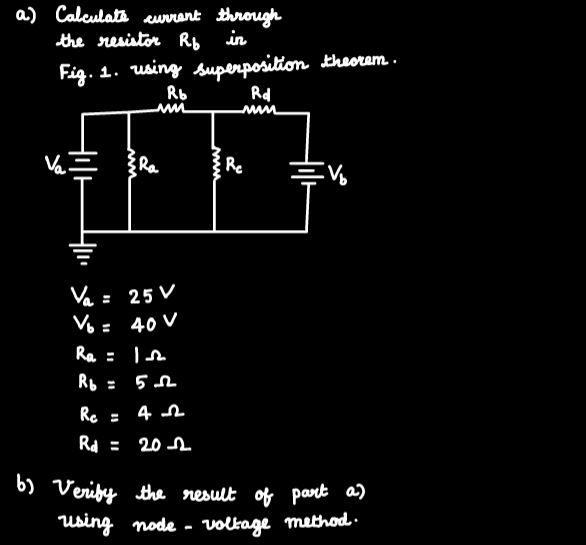 a) Calculate current through
the resistor Rb in
Fig. 1. using superposition theorem.
Rb Rd
Va Ra Rc Vb
Va = 25 V
Vb = 40 V
Ra = 1 Ω
Rb = 5 Ω
Rc = 4 Ω
Rd = 20 Ω
b) Verify the result of part a)
using node - voltage method.